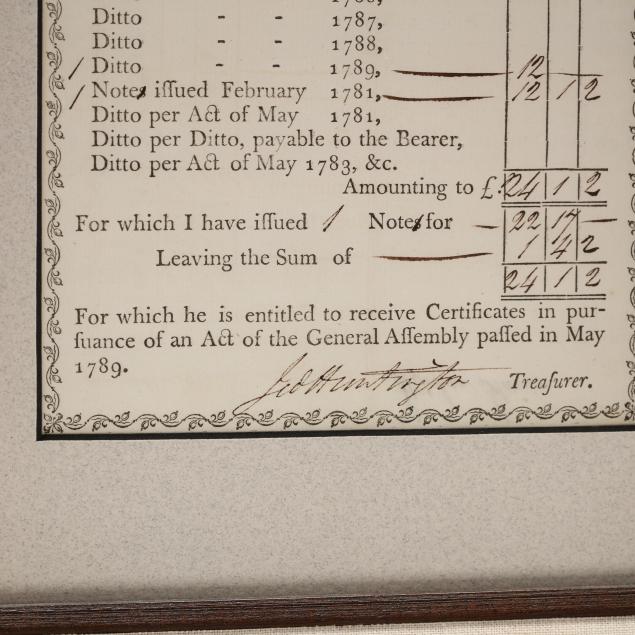 Ditto - - 1787,
Ditto - - 1788,
/ Ditto 1789, 12
/ Notes iſſued February 1781, 12 1 2
Ditto per Act of May 1781,
Ditto per Ditto, payable to the Bearer,
Ditto per Act of May 1783, &c.
Amounting to £. 24 1 2
For which I have iſſued 1 Notes for — 22 17 —
Leaving the Sum of 1 4 2
24 1 2
For which he is entitled to receive Certificates in pur-
ſuance of an Act of the General Aſſembly paſſed in May
1789.
Jed Huntington Treaſurer.